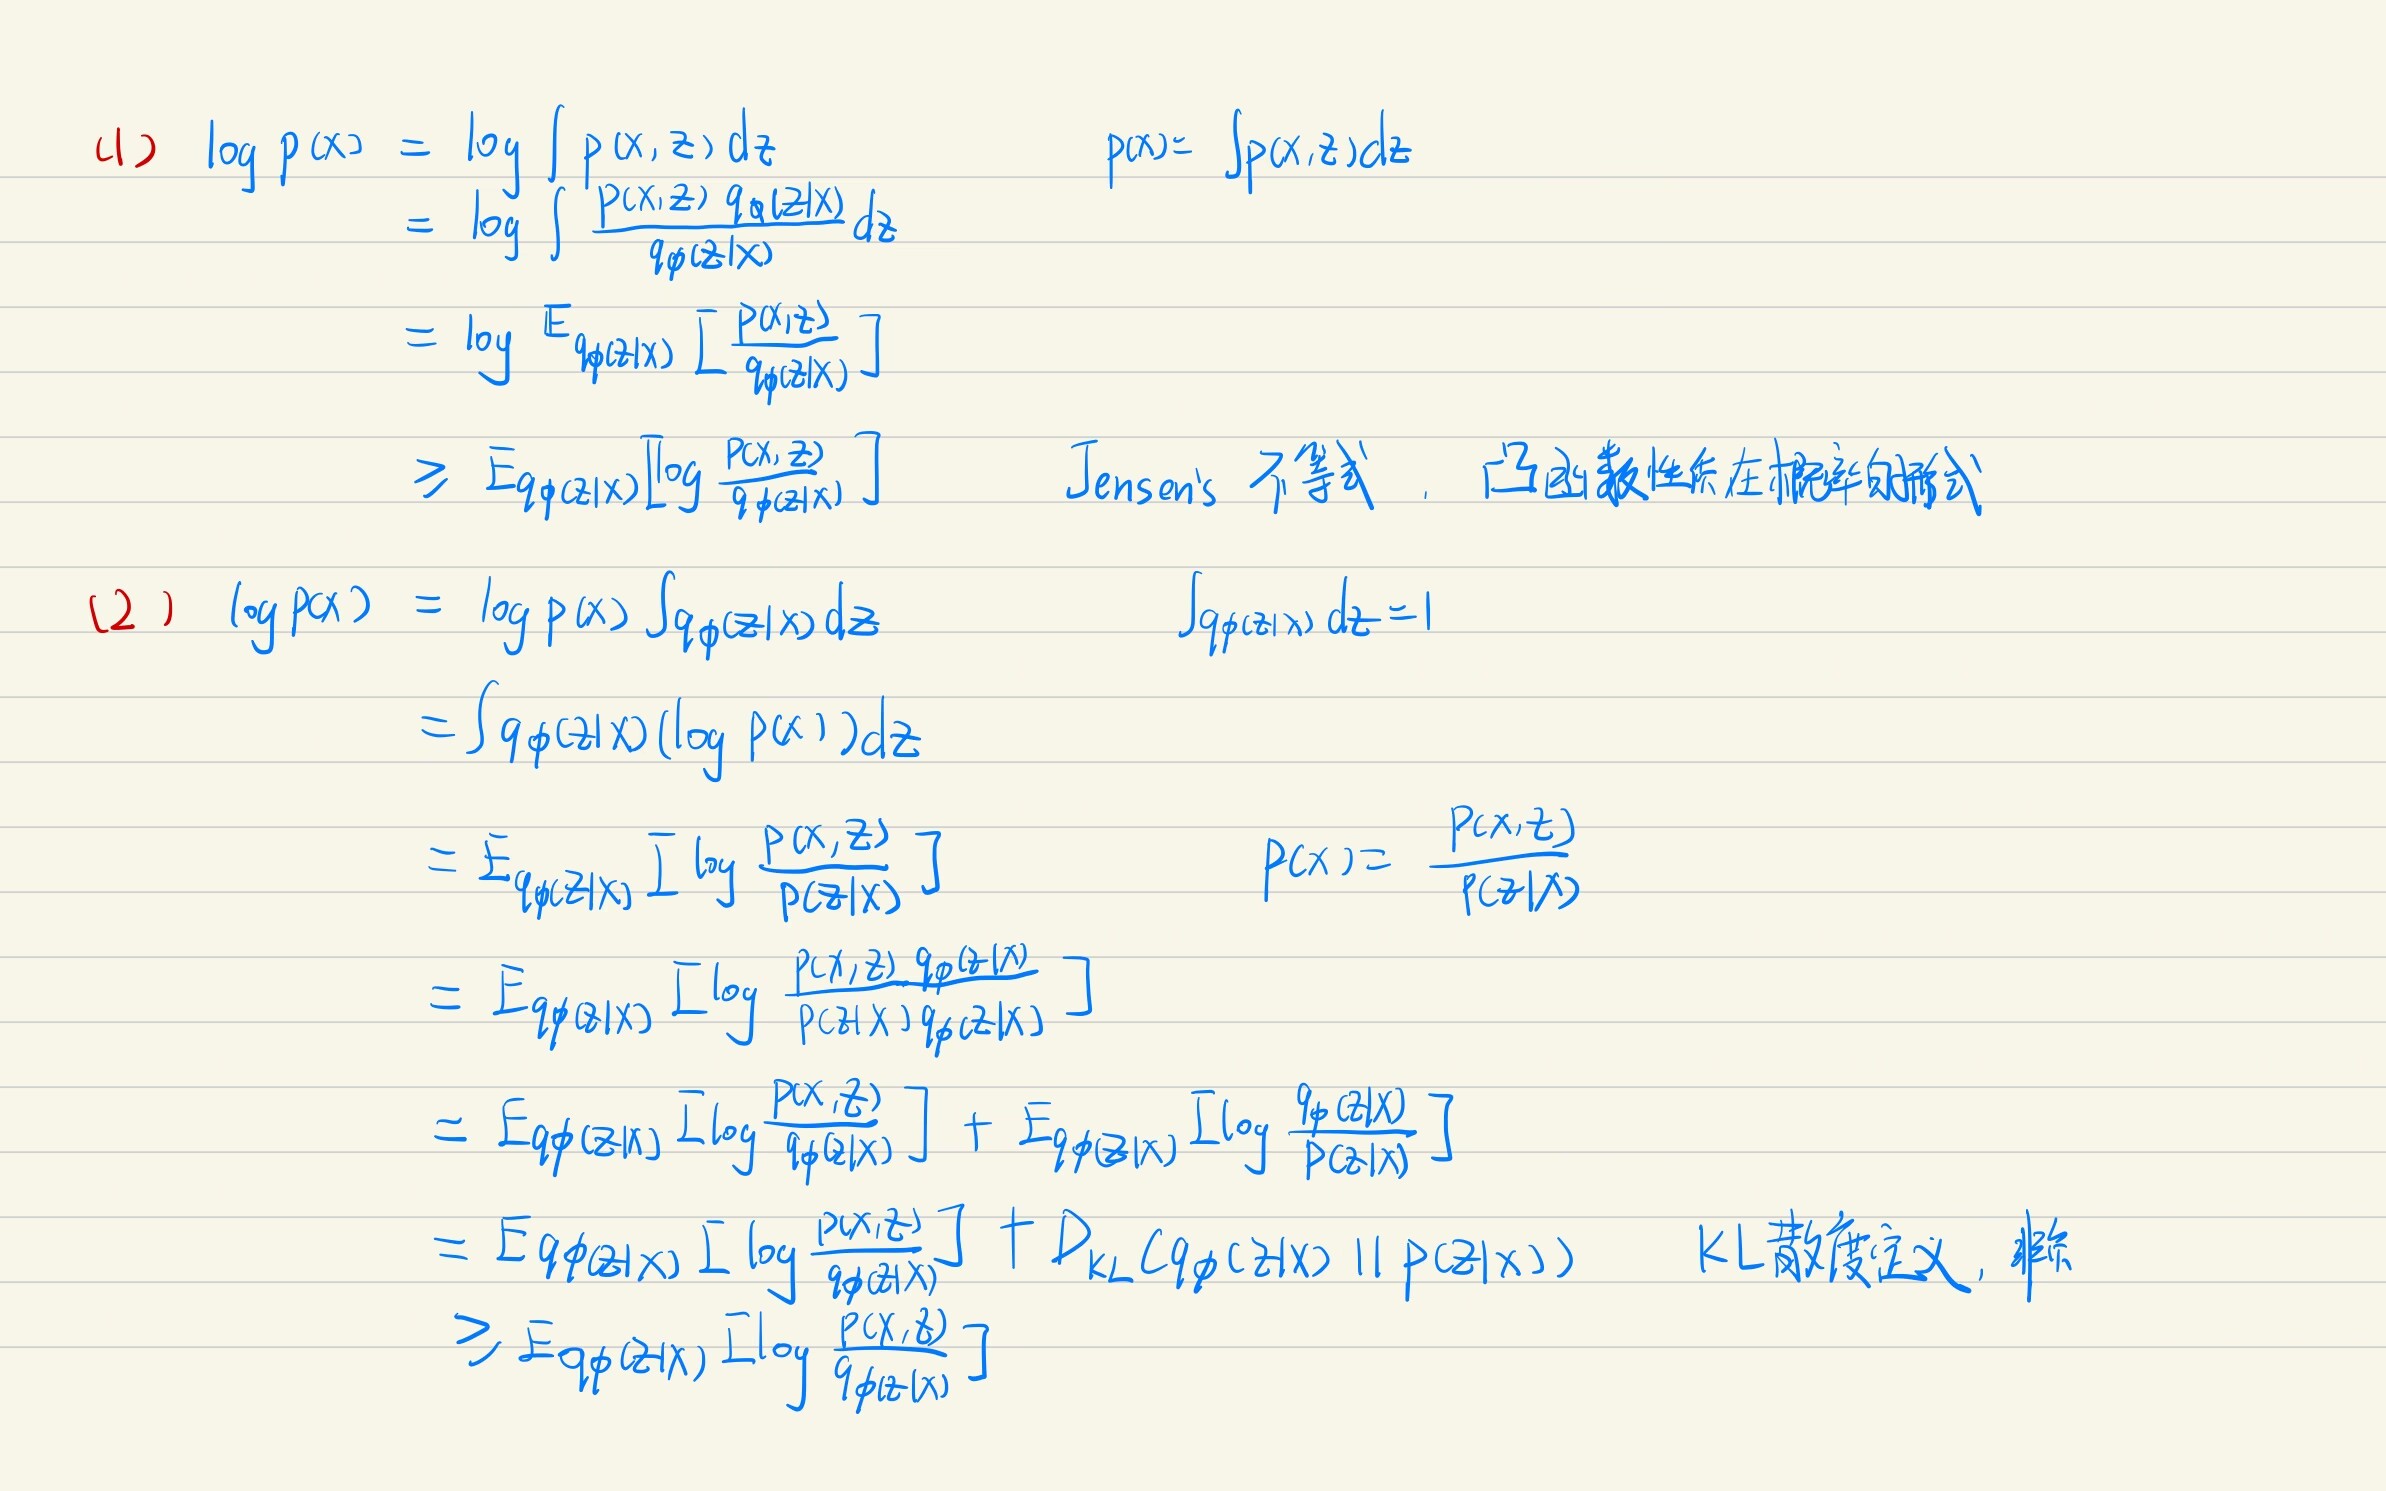 (1) log p(x) = log ∫ p(x, z) dz    p(x) = ∫ p(x, z) dz
= log ∫ \frac{p(x, z) q_φ(z|x)}{q_φ(z|x)} dz
= log E_{q_φ(z|x)} [ \frac{p(x, z)}{q_φ(z|x)} ]
≥ E_{q_φ(z|x)} [ log \frac{p(x, z)}{q_φ(z|x)} ]    Jensen's 不等式 , 凸函数性质在概率的形式
(2) log p(x) = log p(x) ∫ q_φ(z|x) dz    ∫ q_φ(z|x) dz = 1
= ∫ q_φ(z|x) (log p(x)) dz
= E_{q_φ(z|x)} [ log \frac{p(x, z)}{p(z|x)} ]    p(x) = \frac{p(x, z)}{p(z|x)}
= E_{q_φ(z|x)} [ log \frac{p(x, z) q_φ(z|x)}{p(z|x) q_φ(z|x)} ]
= E_{q_φ(z|x)} [ log \frac{p(x, z)}{q_φ(z|x)} ] + E_{q_φ(z|x)} [ log \frac{q_φ(z|x)}{p(z|x)} ]
= E_{q_φ(z|x)} [ log \frac{p(x, z)}{q_φ(z|x)} ] + D_{KL} (q_φ(z|x) || p(z|x))    KL散度定义, 非负
≥ E_{q_φ(z|x)} [ log \frac{p(x, z)}{q_φ(z|x)} ]